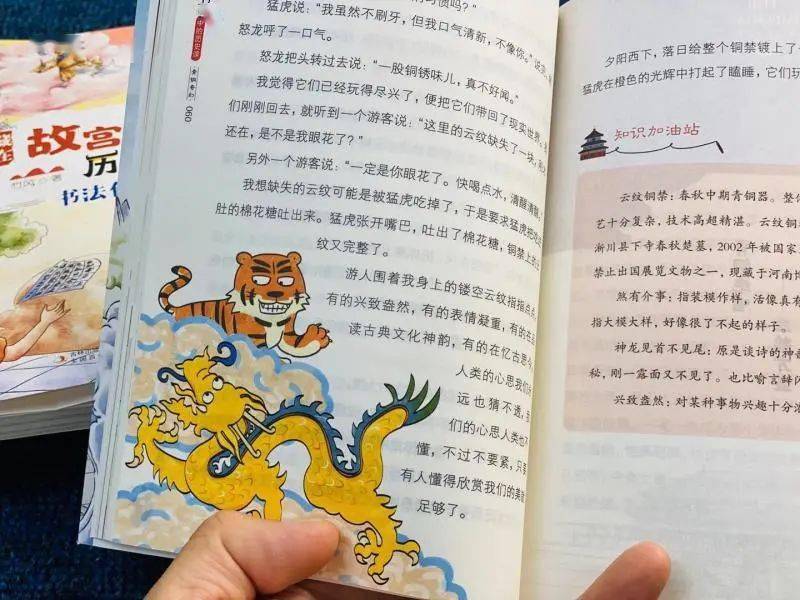 故宫
历
书法
猛虎说：“我虽然不刷牙，但我口气清新，不像你。”说完，
怒龙呼了一口气。
怒龙把头转过去说：“一股铜锈味儿，真不好闻。”
我觉得它们已经玩得尽兴了，便把它们带回了现实世界。
们刚刚回去，就听到一个游客说：“这里的云纹缺失了一块，
还在，是不是我眼花了？”
另外一个游客说：“一定是你眼花了。快喝点水，清醒清醒。”
我想缺失的云纹可能是被猛虎吃掉了，于是要求猛虎把吃
肚的棉花糖吐出来。猛虎张开嘴巴，吐出了棉花糖，铜禁上的
纹又完整了。
游人围着我身上的镂空云纹指指点点，
有的兴致盎然，有的表情凝重，有的在
读古典文化神韵，有的在忆古思今。
人类的心思我们
远也猜不透，
们的心思人类也不
懂，不过不要紧，只要
有人懂得欣赏我们的美就
足够了。
中的历史课
060
夕阳西下，落日给整个铜禁镀上了
猛虎在橙色的光辉中打起了瞌睡，它们玩
知识加油站
云纹铜禁：春秋中期青铜器。整
艺十分复杂，技术高超精湛。云纹铜
淅川县下寺春秋楚墓，2002 年被国家
禁止出国展览文物之一，现藏于河南博
煞有介事：指装模作样，活像真有
指大模大样，好像很了不起的样子。
神龙见首不见尾：原是谈诗的神
秘，刚一露面又不见了。也比喻言辞闪
兴致盎然：对某种事物兴趣十分